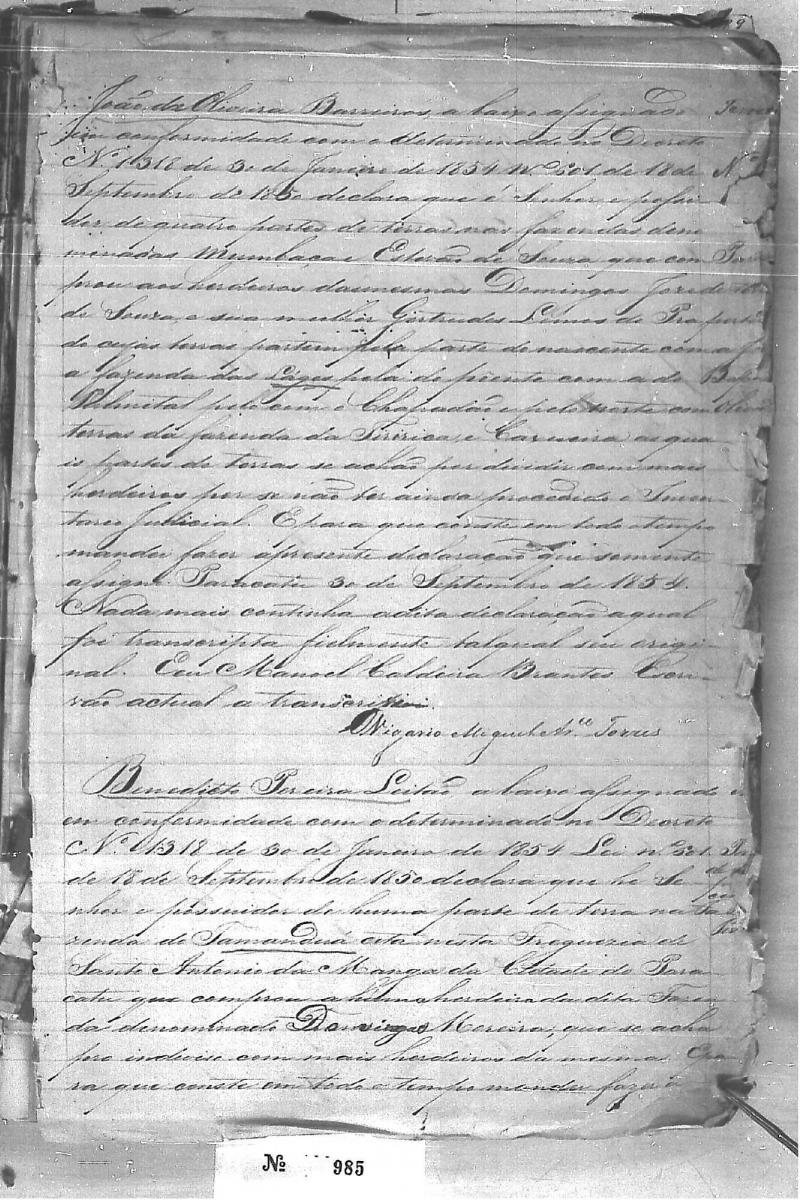 João de Oliveira Barreiros, abaixo assignado
em conformidade com o determinado no Decreto
N.º 1318 de 30 de Janeiro de 1854 N.º 601 de 18 de
Septembro de 1850 declara que é Senhor, e possui
dor de quatro partes de terras nas fazendas deno
minadas Mumbaça e Estevão de Souza, que com
prou aos herdeiros das mesmas Domingos Joze de
de Souza, e sua mulher Gertrudes Lemos do Pra
do cujas terras partem pela parte do nascente com
a fazenda das Lages pela do poente com a do
Palmital pelo com o Chapadão e pelo norte com
terras da fazenda da Tiririca, e Carneira as qua
is partes de terras se achão por dividir com mais
herdeiros por se não ter ainda procedido o Inven
tario Judicial. E para que conste em todo o tempo
mandei fazer a presente declaração que somente
assigno. Paracatu 30 de Septembro de 1854.
Nada mais continha a dita declaração a qual
foi transcripta fielmente tal qual seu origi
nal. Eu Manoel Caldeira Brantes Escri-
vão actual a transcrevi.
O Vigario Miguel Ar.co Torres
Benedicto Pereira Leitão, abaixo assignado
em conformidade com o determinado no Decreto
N.º 1318 de 30 de Janeiro de 1854 Lei n.º 601
de 18 de Septembro de 1850 declara que he Se
nhor e possuidor de huma parte de terra na fa
zenda do Tamanduá cita nesta Freguezia de
Santo Antonio da Manga da Cidade do Para
catu que comprou a hum herdeiro da dita Fazen
da denominado Domingos Moreira, que se acha
pro indiviso com mais herdeiros da mesma. E pa
ra que conste em todo o tempo mandei fazer a
Nº 985